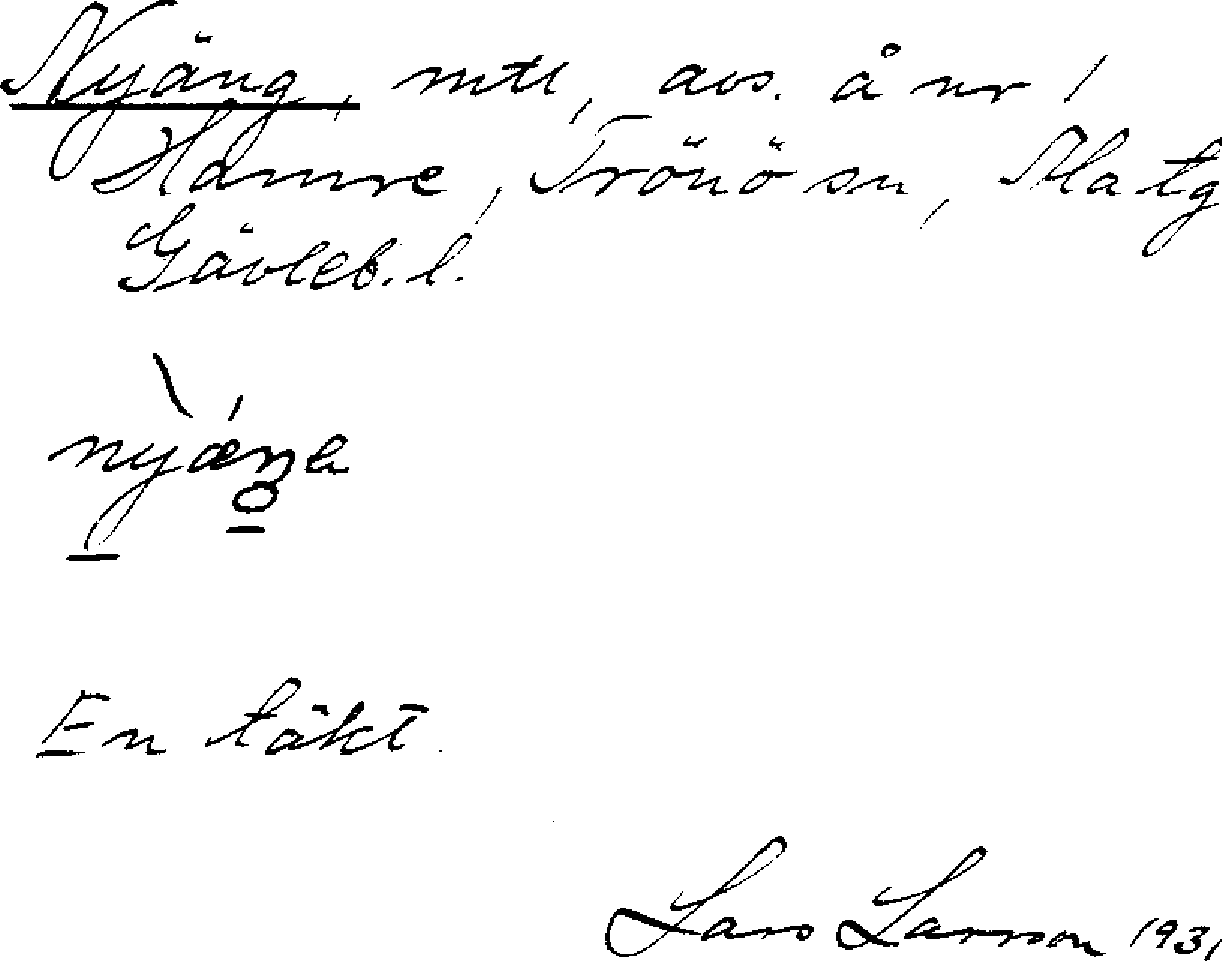 Nyäng, mtl, avs. å nr 1
Hamre, Trönö sn, Ala tg
Gävleb. l.
En täkt.
Lars Larsson 1931